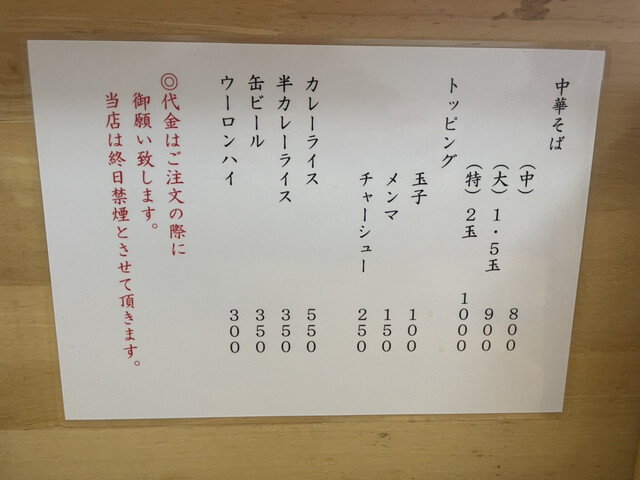 中華そば
（中） 800
（大）１・５玉 900
（特）２玉 1000
トッピング
玉子 100
メンマ 150
チャーシュー 250
カレーライス 550
半カレーライス 350
缶ビール 350
ウーロンハイ 300
◎代金はご注文の際に
御願い致します。
当店は終日禁煙とさせて頂きます。